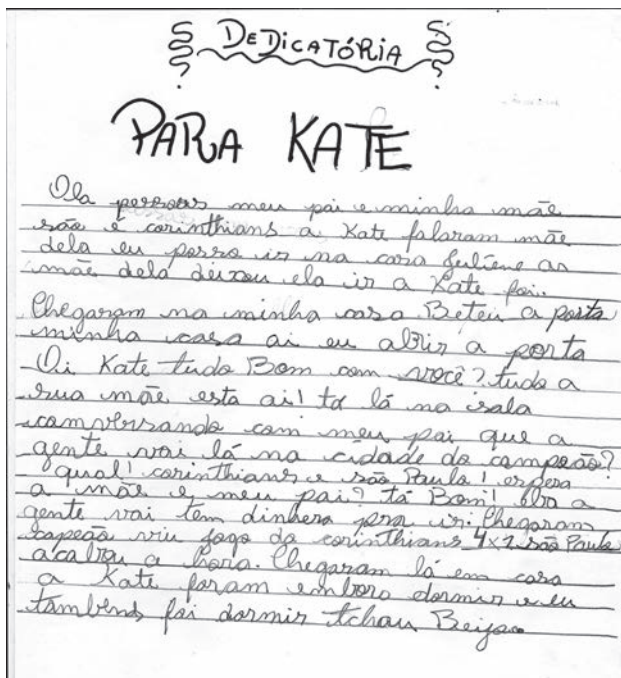 DEDICATÓRIA
PARA KATE
Ola pessoas meu pai e minha mãe
são é corinthians a Kate falaram mãe
dela eu posso ir na casa Juliene as
mãe dela deixou ela ir a Kate foi.
Chegaram na minha casa Beteu a porta
minha casa ai eu abrir a porta
Oi Kate tudo Bom com você? tudo a
sua mãe esta ai! ta lá na sala
comversando com meu pai que a
gente vai lá na cidade do campeão?
qual! corinthians e são Paulo! espera
a mãe e meu pai? tá Bom! a
gente vai tem dinhero pra ir. Chegaram
capeão viu jogo do corinthians 4x2 são Paulo
acabou a hora. Chegaram lá em casa
a Kate foram embora dormir e eu
tambens foi dormir tchau Beijo